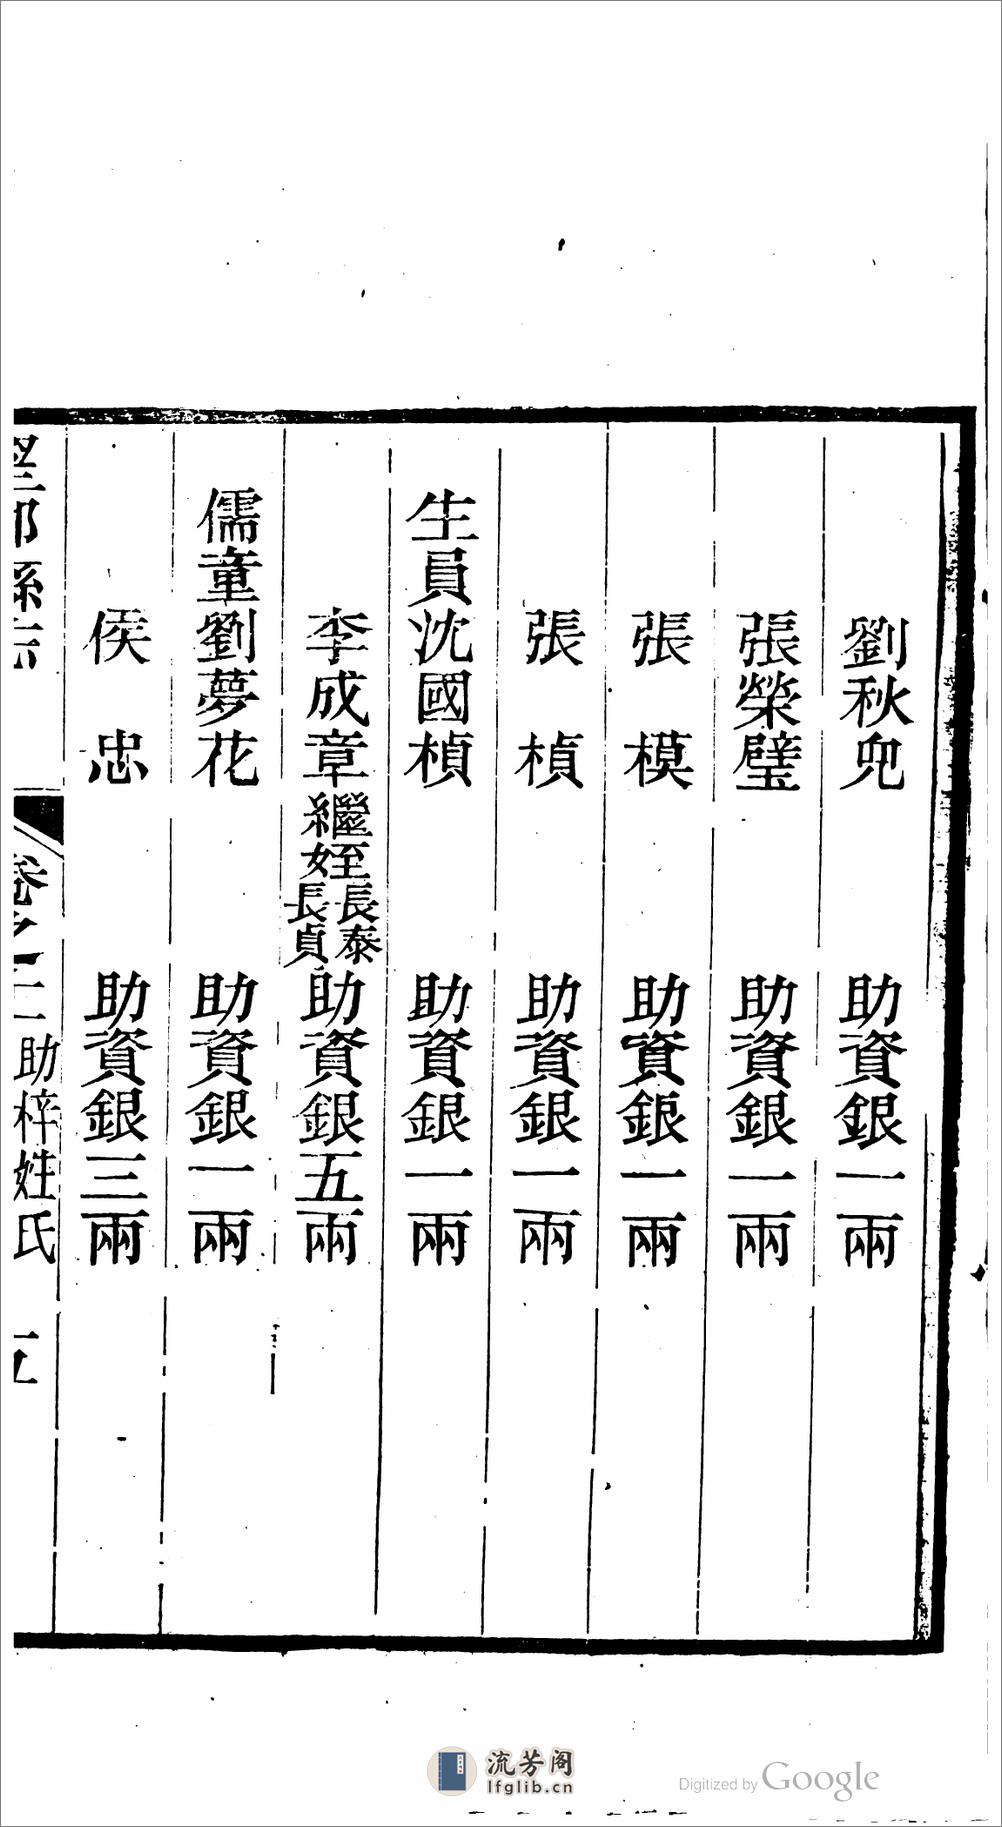 劉秋兜　助資銀一兩
張榮璧　助資銀一兩
張模　助資銀一兩
張楨　助資銀一兩
生員沈國楨　助資銀一兩
李成章繼姪長泰長貞助資銀五兩
儒童劉夢花　助資銀一兩
侯忠　助資銀三兩
望都縣志　卷之　助梓姓氏　五
流芳阁
lfglib.cn
Digitized by Google